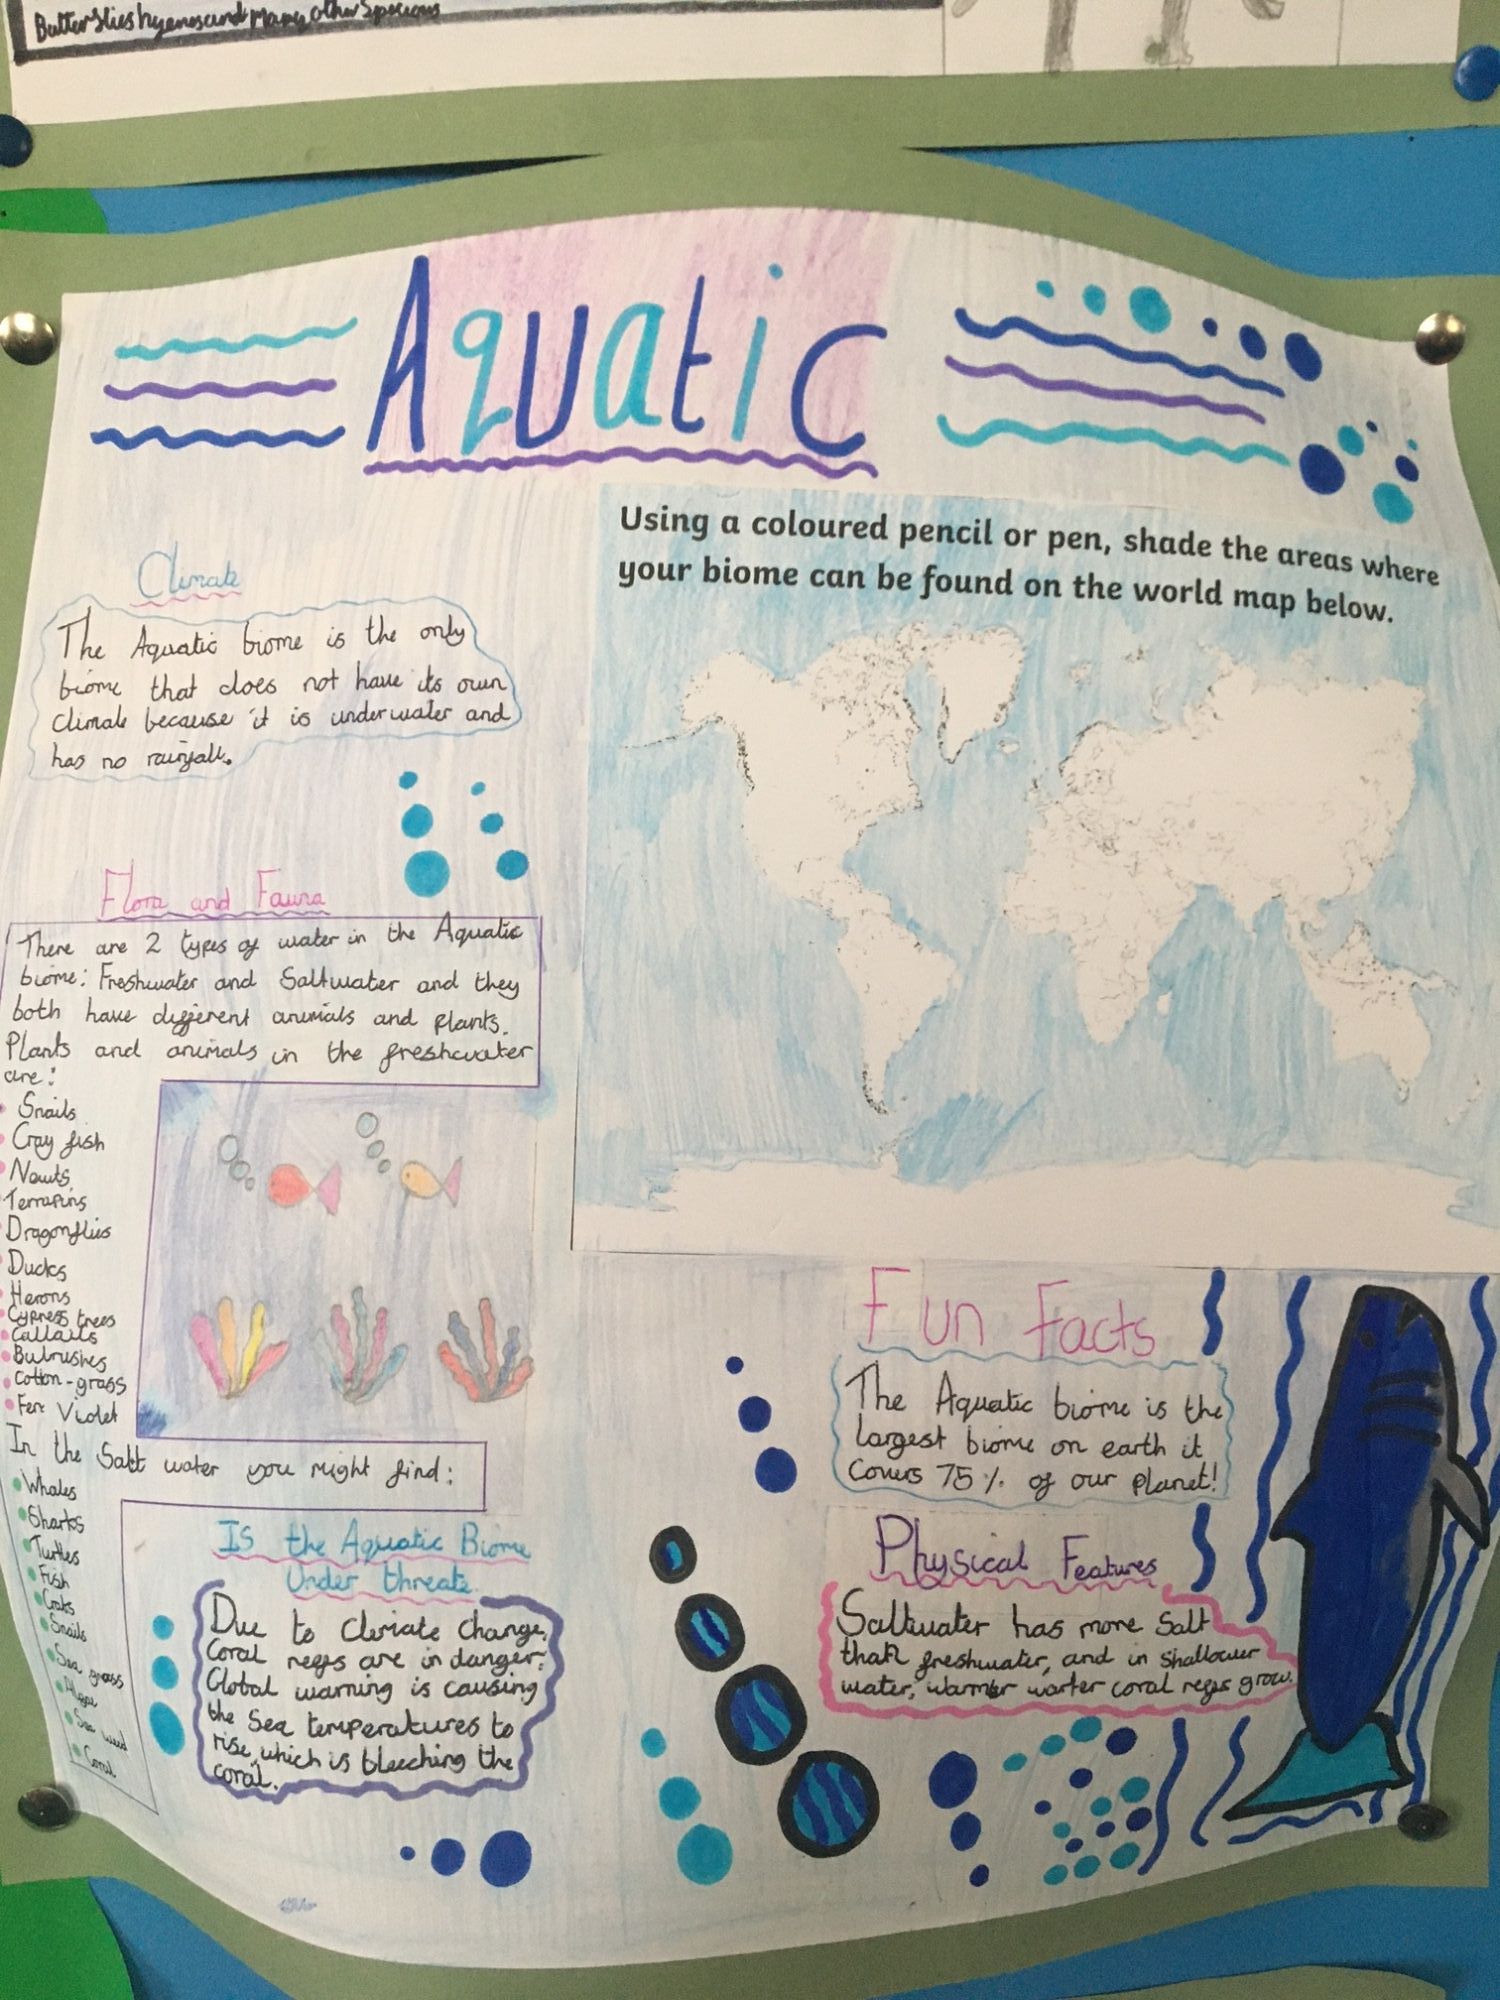 Butterflies hyenas and Many other Species
Aquatic
Using a coloured pencil or pen, shade the areas where
your biome can be found on the world map below.
Climate
The Aquatic biome is the only
biome that does not have its own
climate because it is underwater and
has no rainfall.
Flora and Fauna
There are 2 types of water in the Aquatic
biome: Freshwater and Saltwater and they
both have different animals and plants.
Plants and animals in the freshwater
are:
Snails
Cray fish
Newts
Terrapins
Dragonflies
Ducks
Herons
Cypress trees
Cattails
Bulrushes
Cotton-grass
Fen Violet
In the Salt water you might find:
Whales
Sharks
Turtles
Fish
Crabs
Snails
Sea grass
Algae
Sea weed
Coral
Is the Aquatic Biome
Under threate
Due to Climate change,
Coral reefs are in danger.
Global warning is causing
the Sea temperatures to
rise, which is bleeching the
coral.
Fun Facts
The Aquatic biome is the
largest biome on earth it
covers 75% of our planet!
Physical Features
Saltwater has more Salt
than freshwater, and in shallower
water, warmer warter coral refes grow.